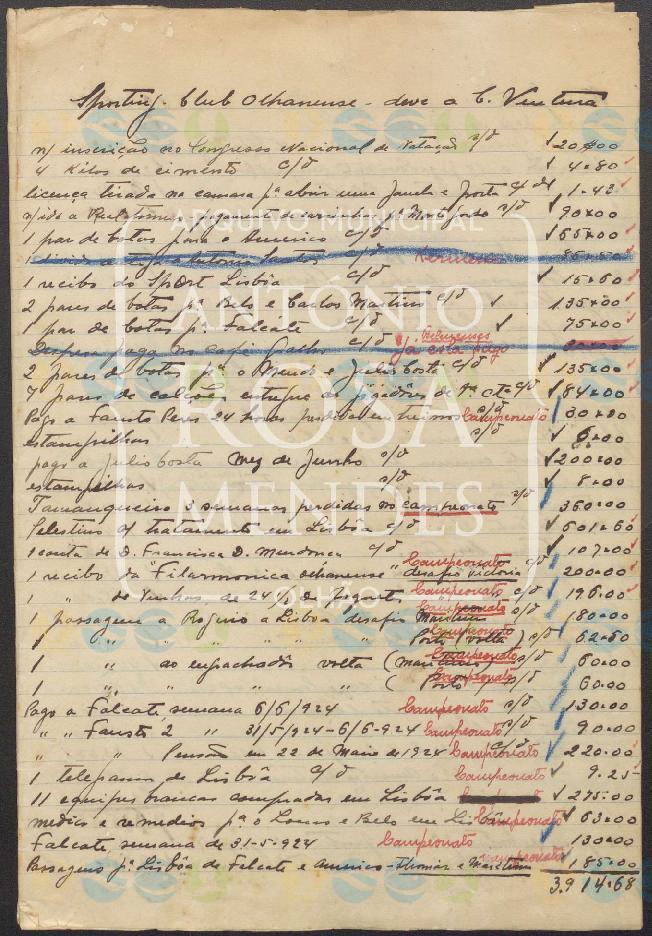 Sporting Club Olhanense - deve a C. Ventura
n/ inscrição no Congresso Nacional de Natação s/d 20$00
4 Kilos de cimento c/d 4.80
licença tirada na camara pª abrir uma Janela e porta c/d 1-43
90$00
1 par de botas para o Americo c/d 65$00
c/d Kermesse
1 recibo do Sport Lisbôa c/d
2 pares de botas pª Belo e Carlos Martins c/d 135$00
1 par de botas pª Falcate c/d 75$00
Belenenses
Despesa paga no Café c/d Já está pago
2 pares de botas pª o Mendo e Julio Costa c/d 135$00
7 pares de calções jogadores de 1ª ctª c/d 84$00
Pago a Fausto Peres 24 horas perdidas em treinos s/d Campeonato 30$00
estampilhas s/d 6$00
pago a Julio Costa mez de Junho s/d 200$00
estampilhas s/d 8$00
Tamanqueiro 3 semanas perdidas no campeonato s/d 360.00
Celestino tratamento em Lisbôa c/d 601$60
1 conta de D. Francisca D. Mendonça c/d 107$00
1 recibo da "Filarmonica olhanense" desafio victoria Campeonato c/d 200$00
1 " de Vinhos de 24 Campeonato c/d 196.00
1 passagem a Rogerio a Lisboa desafio Maritimo Campeonato c/d 180$00
" " " " " Porto (volta) Campeonato s/d 62-60
1 " ao empachadôr volta (maritimo) Campeonato s/d 60.00
1 " " " " ( Porto ) Campeonato s/d 60.00
Pago a Falcate, semana 6/6/924 Campeonato s/d 130.00
" " Fausto 2 " 31/5/924-6/6-924 Campeonato s/d 90.00
" " Pensão em 22 de Maio de 1924 c/d Campeonato 220.00
1 telegrama de Lisbôa c/d Campeonato 9.25
11 equipes brancas compradas em Lisbôa 275.00
medico e remedios pª o Louro e Belo em Lisbôa Campeonato 63$00
Falcate, semana de 31-5-924 Campeonato 130$00
Passagens pª Lisbôa de Falcate e Americo - Thomar e Maritimo Campeonato 185.00
3.914$68
ARQUIVO MUNICIPAL
ANTÓNIO
ROSA
MENDES
OLHÃO